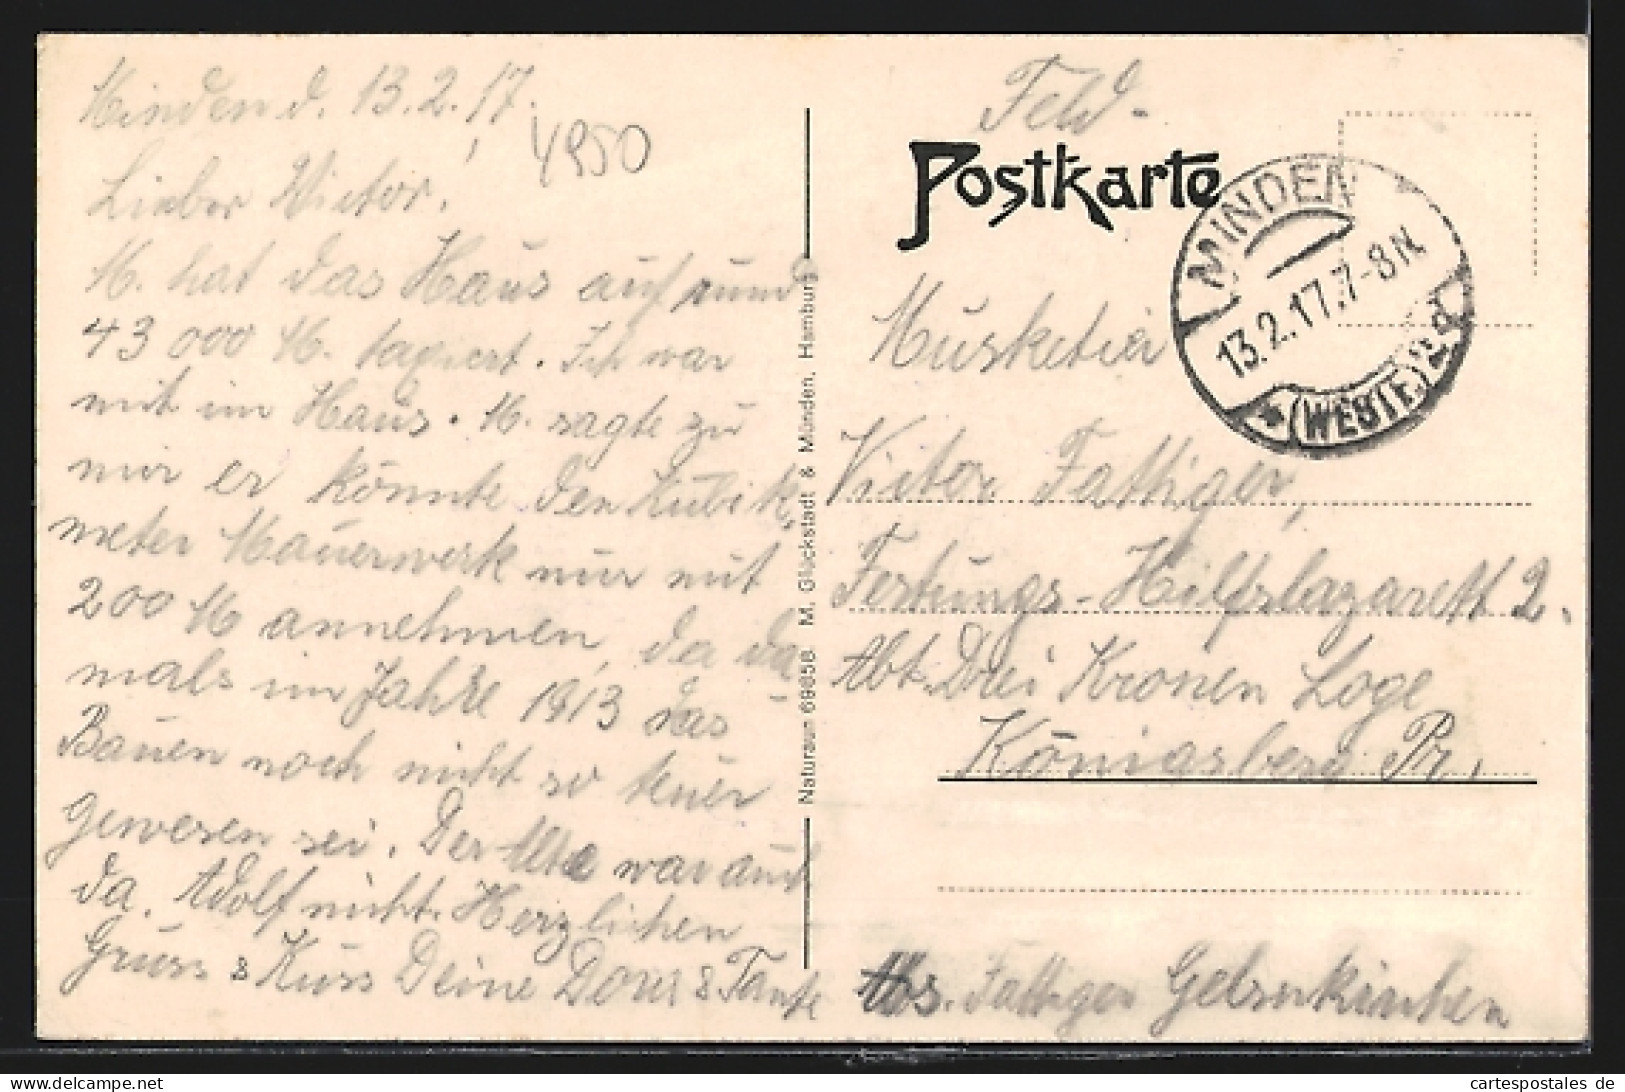 Minden d. 13.2.17.
4950
Lieber Victor!
M. hat das Haus auf rund
43 000 M. taxiert. Ich war
mit im Haus. M. sagte zu
mir er könnte den Kubik-
meter Mauerwerk nur mit
200 M annehmen, da da-
mals im Jahre 1913 das
Bauen noch nicht so teuer
gewesen sei. Der Alte war auch
da. Adolf nicht. Herzlichen
Gruss & Kuss Deine & Tante
Naturaun 69858 M. Glückstadt & Münden, Hamburg
Feld-
Postkarte
MINDEN
13.2.17.7-8N
* (WESTF.)
Musketier
Victor Fattiger,
Festungs-Hilfslazarett 2.
Abt. Drei Kronen Loge
Königsberg Pr.
Abs. Fattiger Gelsenkirchen
cartespostales de